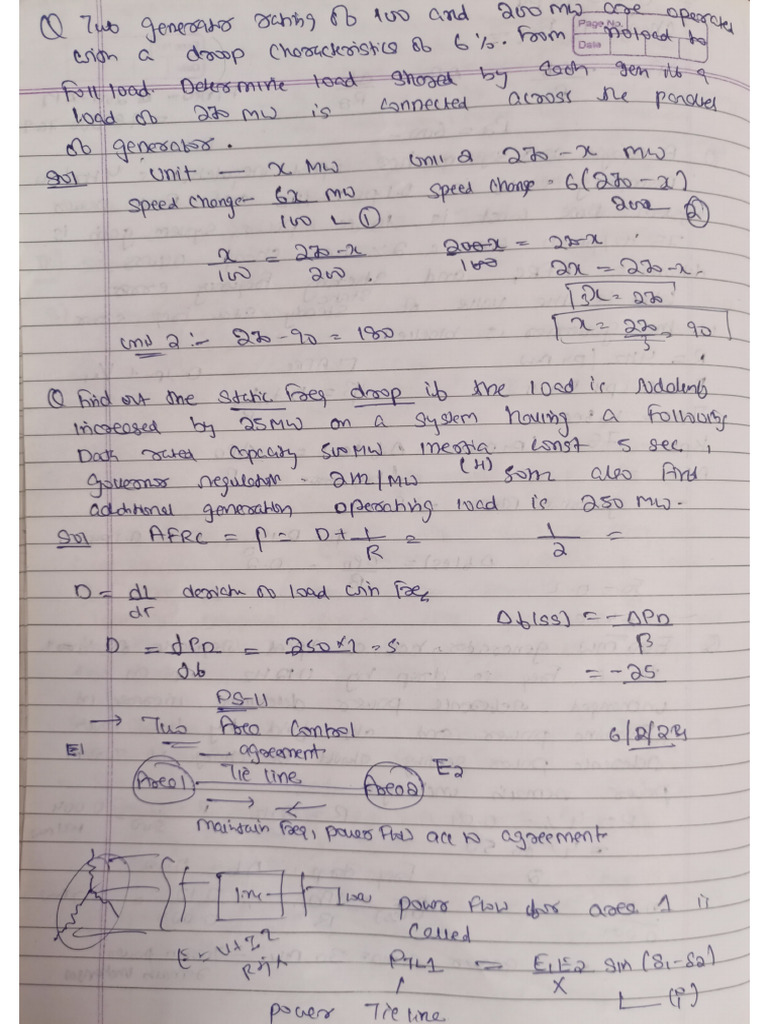 Q Two generator rating of 100 and 200 MW are operates
Page No.
Date
with a droop characteristics of 6%. From noload to
Full load. Determine load shared by each gen if a
load of 270 MW is connected across the parallel
of generator.
Sol Unit — x MW Unit 2 270 - x MW
Speed change - 6x MW Speed change = 6(270 - x)
100 ① 200 ②
x/100 = 270-x/200 200x/100 = 270-x
2x = 270-x.
3x = 270
x = 270/3 = 90
Unit 2 :- 270 - 90 = 180
Q Find out the static freq drop if the load is suddenly
increased by 25MW on a system having a following
Data rated capacity 500MW. inertia const 5 sec,
(H)
governor regulation = 2Hz/MW also find
additional generation operating load is 250 MW.
Sol AFRC = β = D + 1/R = 1/2 =
D = dl/df of load with freq
Δf(ss) = -ΔPD/β
D = dPD/df = 250*1 = 5
= -25
PS-11
→ Two Area Control 6/2/24
E1 agreement
Area1 Tie line Area2 E2
maintain freq, power flow acc to agreement
Line power flow for area 1 is
called
E = V + IZ
R+jX
Ptl1 = E1E2/X sin(δ1-δ2)
(i)
power Tie line